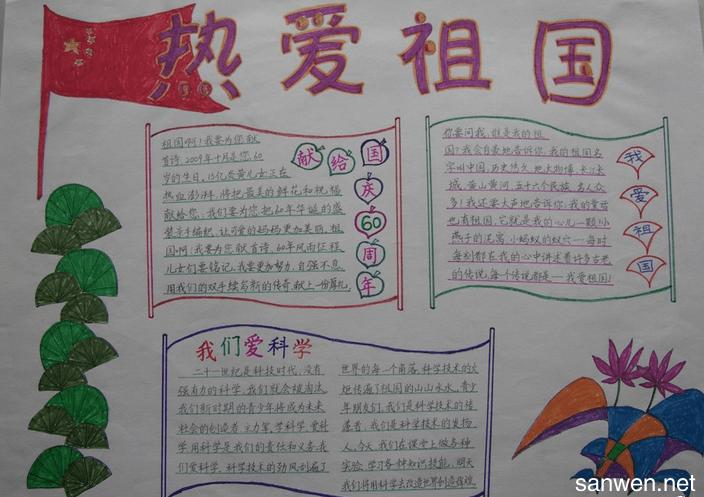 热爱祖国
祖国啊!我要为您献
首诗,2009年十月是您60
岁的生日,13亿炎黄儿女正在
热血澎湃,将把最美的鲜花和祝福
献给您:我们要为您把60年华诞的盛
装亲手编织,让可爱的妈妈更加美丽.祖
国啊!我要为您献首诗,60年风雨征程
儿女们要铭记,我要更加努力,自强不息
用我们的双手续写新的传奇,献上一份厚礼
献给国
庆
60
周
年
你要问我,谁是我的祖
国?我会自豪地告诉你,我的祖国名
字叫中国,历史悠久,地大物博,长江长
城,黄山黄河,五十六个民族,名人众
多!我还要大声地告诉你:我的童音
也有祖国,它就是我的心儿一颗!小
燕子的泥窝,小蚂蚁的蚁穴……每时
每刻都在我的心中讲述着许多古老
的传说,每个传说都是——我爱祖国!
我
爱
祖
国
我们爱科学
二十一世纪是科技时代,没有
强有力的科学,我们就会被淘汰,
我们新时期的青少年将成为未来
社会的创造者、主力军,学科学、爱科
学、用科学是我们的责任和义务,我
们爱科学,科学技术的劲风刮遍了
世界的每一个角落,科学技术的火
炬传遍了祖国的山山水水,青少
年朋友们,我们是科学技术的传
播者,我们是科学技术的发扬
人,今天,我们在课堂上做各种
实验,学习各种知识技能,明天
我们将用科学去改造世界,创造辉煌
sanwen.net